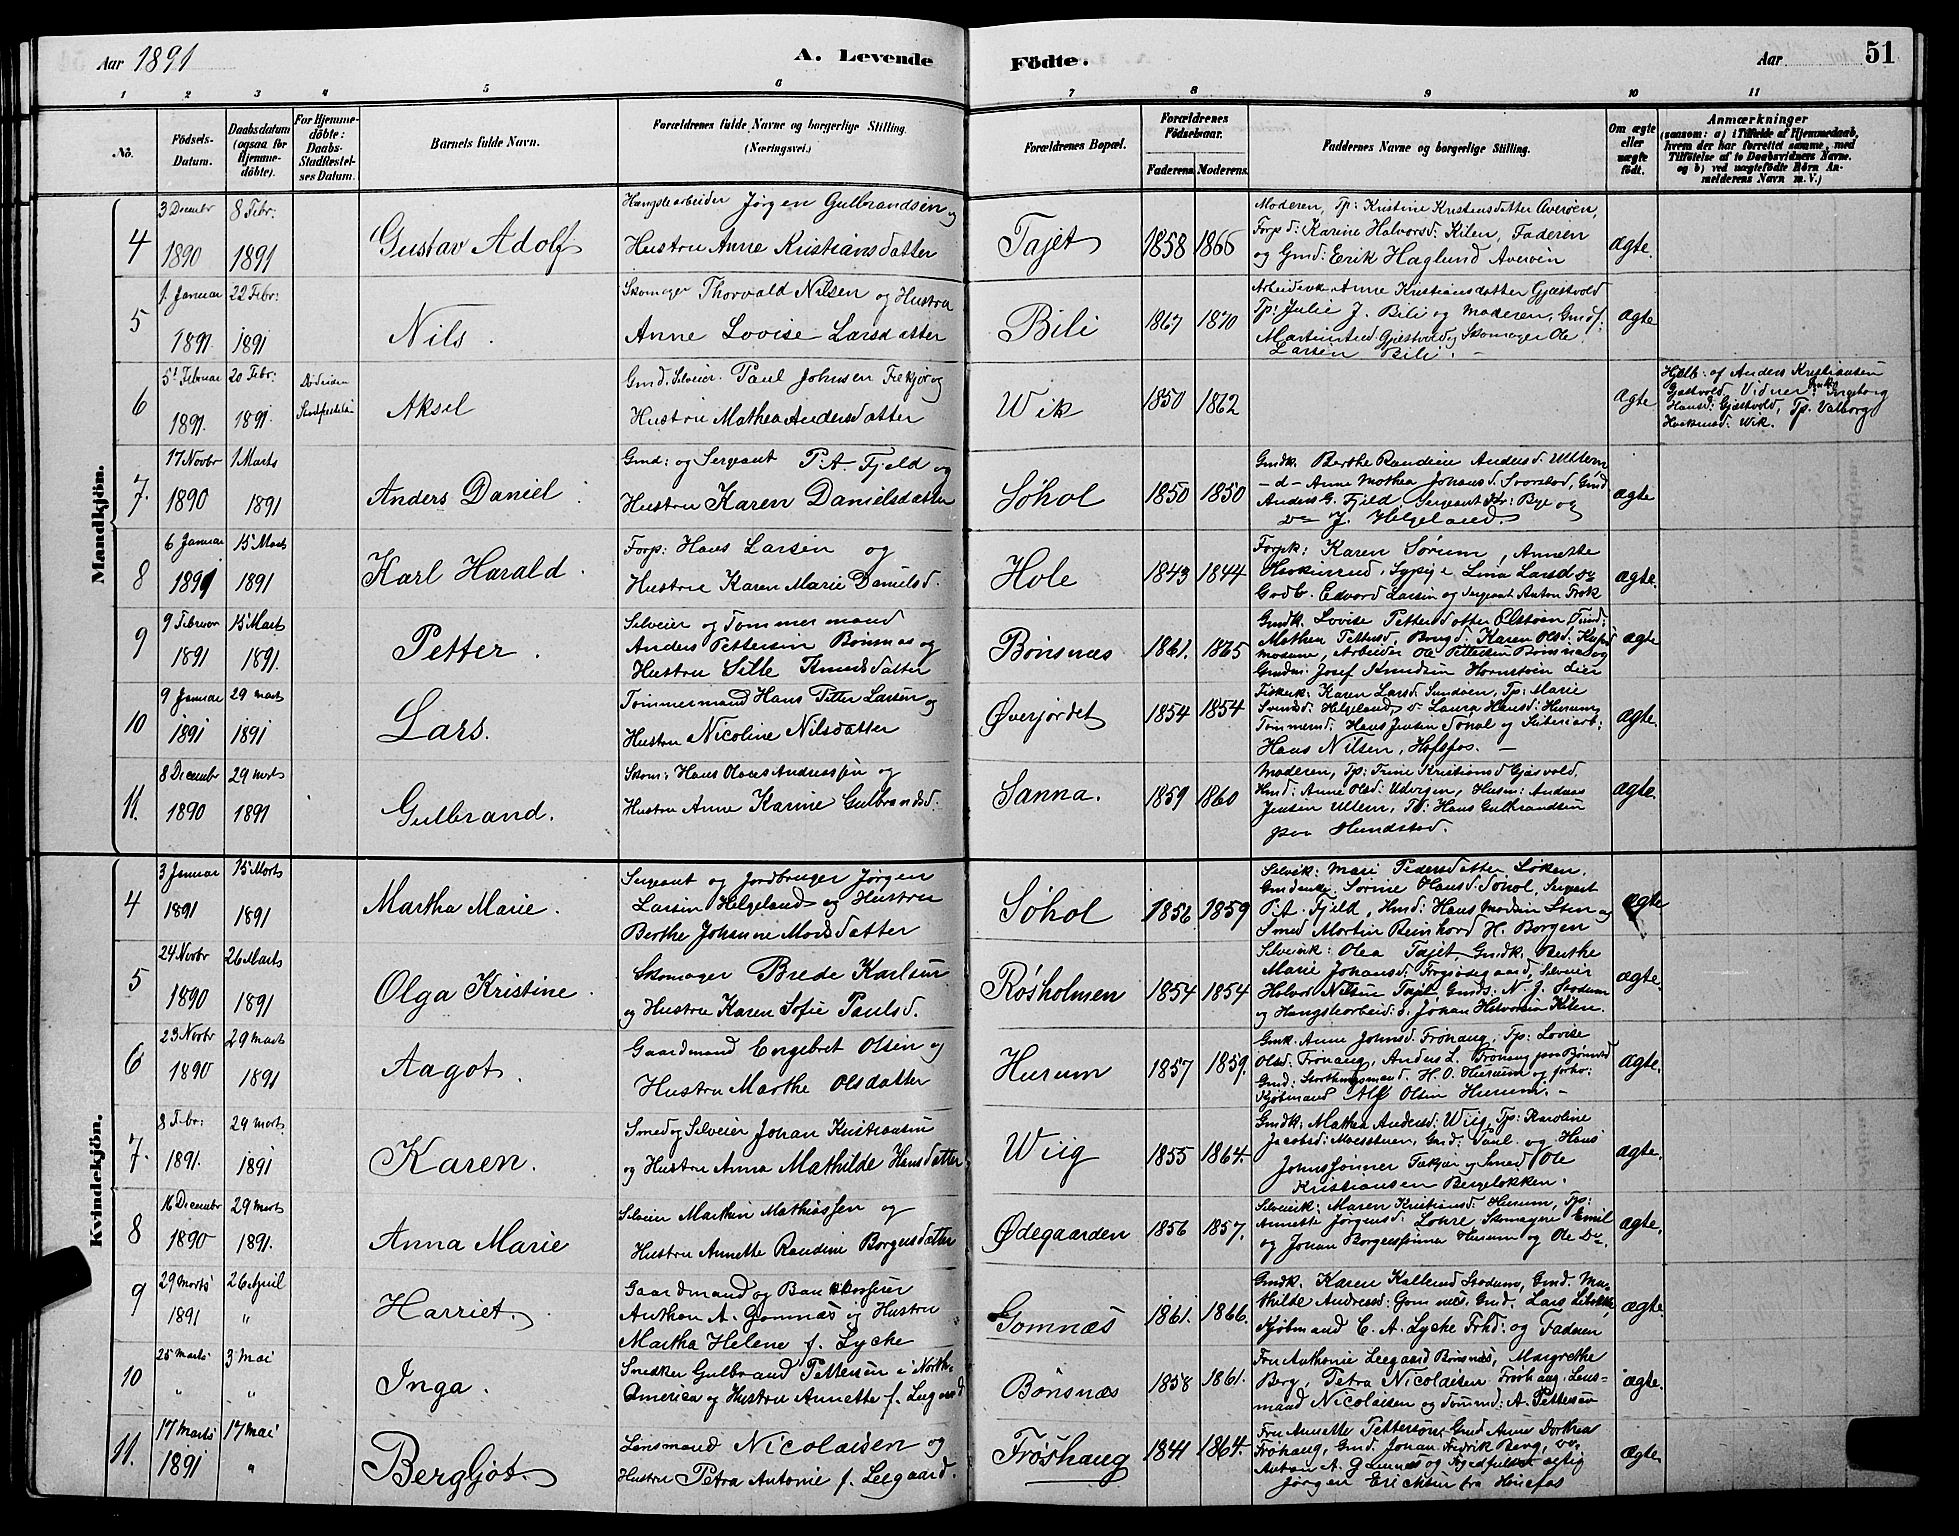 Aar 1891
A. Levende
Födte.
Aar
51
1 2 3 4 5 6 7 8 9 10 11
No.
Födsels-Datum.
Daabsdatum (ogsaa för Hjemme-döbte).
For Hjemme-döbte: Daabs-Stadfæstel-ses Datum.
Barnets fulde Navn.
Forældrenes fulde Navne og borgerlige Stilling.
(Næringsvei.)
Forældrenes Bopæl.
Forældrenes Födselsaar.
Faderens Moderens
Faddernes Navne og borgerlige Stilling.
Om ægte eller uægte födt.
Anmærkninger
(saasom: a) i Tilfælde af Hjemmedaab, hvem der har forrettet samme, med Tilföielse af to Daabsvidners Navne. og b) ved uægtefödte Börn An-melderens Navn m. V.)
Mandkjön.
4
3 Decembr 1890
8 Febr: 1891
Gustav Adolf
Jörgen Gulbrandsen og
Hustru Anne Kristiansdatter
Tajet
1858 1866
Moderen, Tp: Kristine Kristensdatter Averøen,
Karine Halvorsd. Kilen, Faderen
og Gmd: Erik Haglund Averøen
ægte.
5
1. Januar 1891
22 Febr: 1891
Nils.
Skomager Thorvald Nilsen og Hustru
Anne Lovise Larsdatter
Bili
1867 1870
Anne Kristiansdatter Gjæstvold
Tp: Julie J. Bili og Moderen, Gmdf:
Gjæstvold og Skomager Ole
Larsen Bili.
ægte
6
5t Februar 1891
20 Febr: 1891.
Død inden Stadfæstelsen
Aksel
Gmd. Selveier. Paul Johnsen Fekjør og
Hustru Mathea Andersdatter
Wik
1850 1862
ægte
Hjdb: af Anders Kristiansen
Gjæstvold, Vidner: Ingeborg
Hansd: Gjæstvold, Tp: Valborg
Wik.
7.
17 Novbr 1890
1 Marts 1891
Anders Daniel
Gmd: og Sergeant P. A. Fjeld og
Hustru Karen Danielsdatter
Søhol
1850 1850
Gmdk. Berthe Randine Andersd. Ullern
- d - Anne Mathea Johansd. Gmd
Anders G. Fjeld, Sergeant Bye og
J. Helgeland.
ægte
8
6 Januar 1891
15 Marts 1891
Karl Harald.
Forp: Hans Larsen og
Hustru Karen Marie Danielsd.
Hole
1843 1844
Forpk: Karen Sørum, Annette
Sypige Lina Larsd
Godb. Edvard Larsen og Sergeant Anton Frok
ægte.
9
9 Februar 1891
15 Marts 1891.
Petter.
Selveier og Tømmermand
Anders Pettersen Bønsnæs og
Hustru Sille Knudsdatter
Bønsnæs
1861. 1865
Gmdk. Lovise Pettersdatter
Mathea Pettersd, Karen Olsd.
Arbeider Ole Pettersen Bønsnæs og
Josef Knudsen
ægte
10
9 Januar 1891
29 marts 1891
Lars.
Tømmermand Hans Petter Larsen og
Hustru Nicoline Nilsdatter
Øverjordet
1854 1854
Karen Larsd. Sundøen, Tp: Marie
Helgeland, Laura Hansd: Hurum,
Tømmermd: Hans Jensen Søhol og
Hans Nilsen, Hofsfos. -
ægte.
11.
8 Decembr 1890
29 marts 1891
Gulbrand.
Skom: Hans Andreassen og
Hustru Anne Karine Gulbrandsd.
Sanna.
1859 1860
Moderen, Tp: Trine Kristiansd Gjæsvold,
Anne Olsd: Andreas
Jensen Ullern, Tp: Hans Gulbrandsen
paa Hundstad.
ægte.
Kvindekjön.
4
3 Januar 1891
15 Marts 1891
Martha Marie.
Sergeant og Jordbruger Jörgen
Larsen Helgeland og Hustru
Berthe Johanne Monsdatter
Søhol
1856 1859
Selvk: Mari Pedersdatter Løken,
Sørine Olausd. Søhol, Sergeant
P. A. Fjeld, Hans Madsen Sten og
Smed Martin Reinhard H. Borgen
ægte
5
24 Novbr 1890
26 Marts 1891
Olga Kristine.
Skomager Brede Karlsen
og Hustru Karen Sofie Paulsd.
Røsholmen
1854 1854
Olea Tajet Gmdk: Berthe
Marie Johansd. Selveier
Halvor Nilsen Tajet Gmds: N. J. Stadum
Johan Halvorsen Kilen.
ægte.
6
23 Novbr 1890
29 marts 1891
Aagot.
Gaardmand Engebret Olsen og
Hustru Marthe Olsdatter
Hurum
1857 1859.
Gmk. Anne Johnsd. Frøhaug, Tp: Lovise
Olsd. Frøhaug, Anders L. Frøhaug paa Bjørnstd
Gmd: Storthingsmand. H. O. Hurum og
Kjøbmand Alf Olsen Hurum. -
ægte.
7.
8 Febr: 1891.
29 marts 1891
Karen.
Smed og Selveier Johan Kristiansen
og Hustru Anna Mathilde Hansdatter
Wiig
1855 1864.
Gmdk: Mathea Andersd: Wiig, Tp: Karoline
Jacobsd: Moesstuen, Gmd: Paul og Hans
Johnssønner Fækjær og Smed Ole
Kristiansen Bergeløkken.
ægte.
8
16 Decembr 1890
29 marts 1891.
Anna Marie
Selveier Marthin Mathiassen og
Hustru Annette Randine Borgersdatter
Ødegaarden
1856 1857.
Selveierk: Maren Kristiansd. Hurum, Tp:
Annette Jørgensd: Lohre, Skomagere Emil
og Johan Borgerssønner Hurum og Ole Do.
ægte.
9
29 marts 1891
26 April "
Harriet.
Gaardmand og Bankkasserer
Anthon A. Gomnæs og Hustru
Martha Helene f. Lycke
Gomnæs
1861. 1866.
Gmdk. Karen Stadum, Gmd. Ma-
thilde Andreasd: Gomnæs. Gmd. Lars
Kjøbmand C. A. Lycke Frhd: og Faderen
ægte
10
25 marts "
3 Mai "
Inga.
Snedker Gulbrand Pettersen i North-
America og Hustru Annette f. Leegaard
Bønsnæs
1858 1861.
Fru Anthonie Leegaard Bønsnæs, Margrethe
Berg, Petra Nicolaisen Frøshaug. Lens=
mand Nicolaisen og A. Pettersen
ægte.
11.
17 marts 1891
17 mai "
Bergljot.
Lensmand Nicolaisen og
Hustru Petra Antonie f. Leegaard.
Frøshaug
1841 1864.
Fru Annette Pettersen, Gmd Anne Dorthea
Frøhaug, Gmd. Johan Fredrik Berg,
Anton A. Gomnæs og
Jørgen Erichsen fra Hønefos
ægte